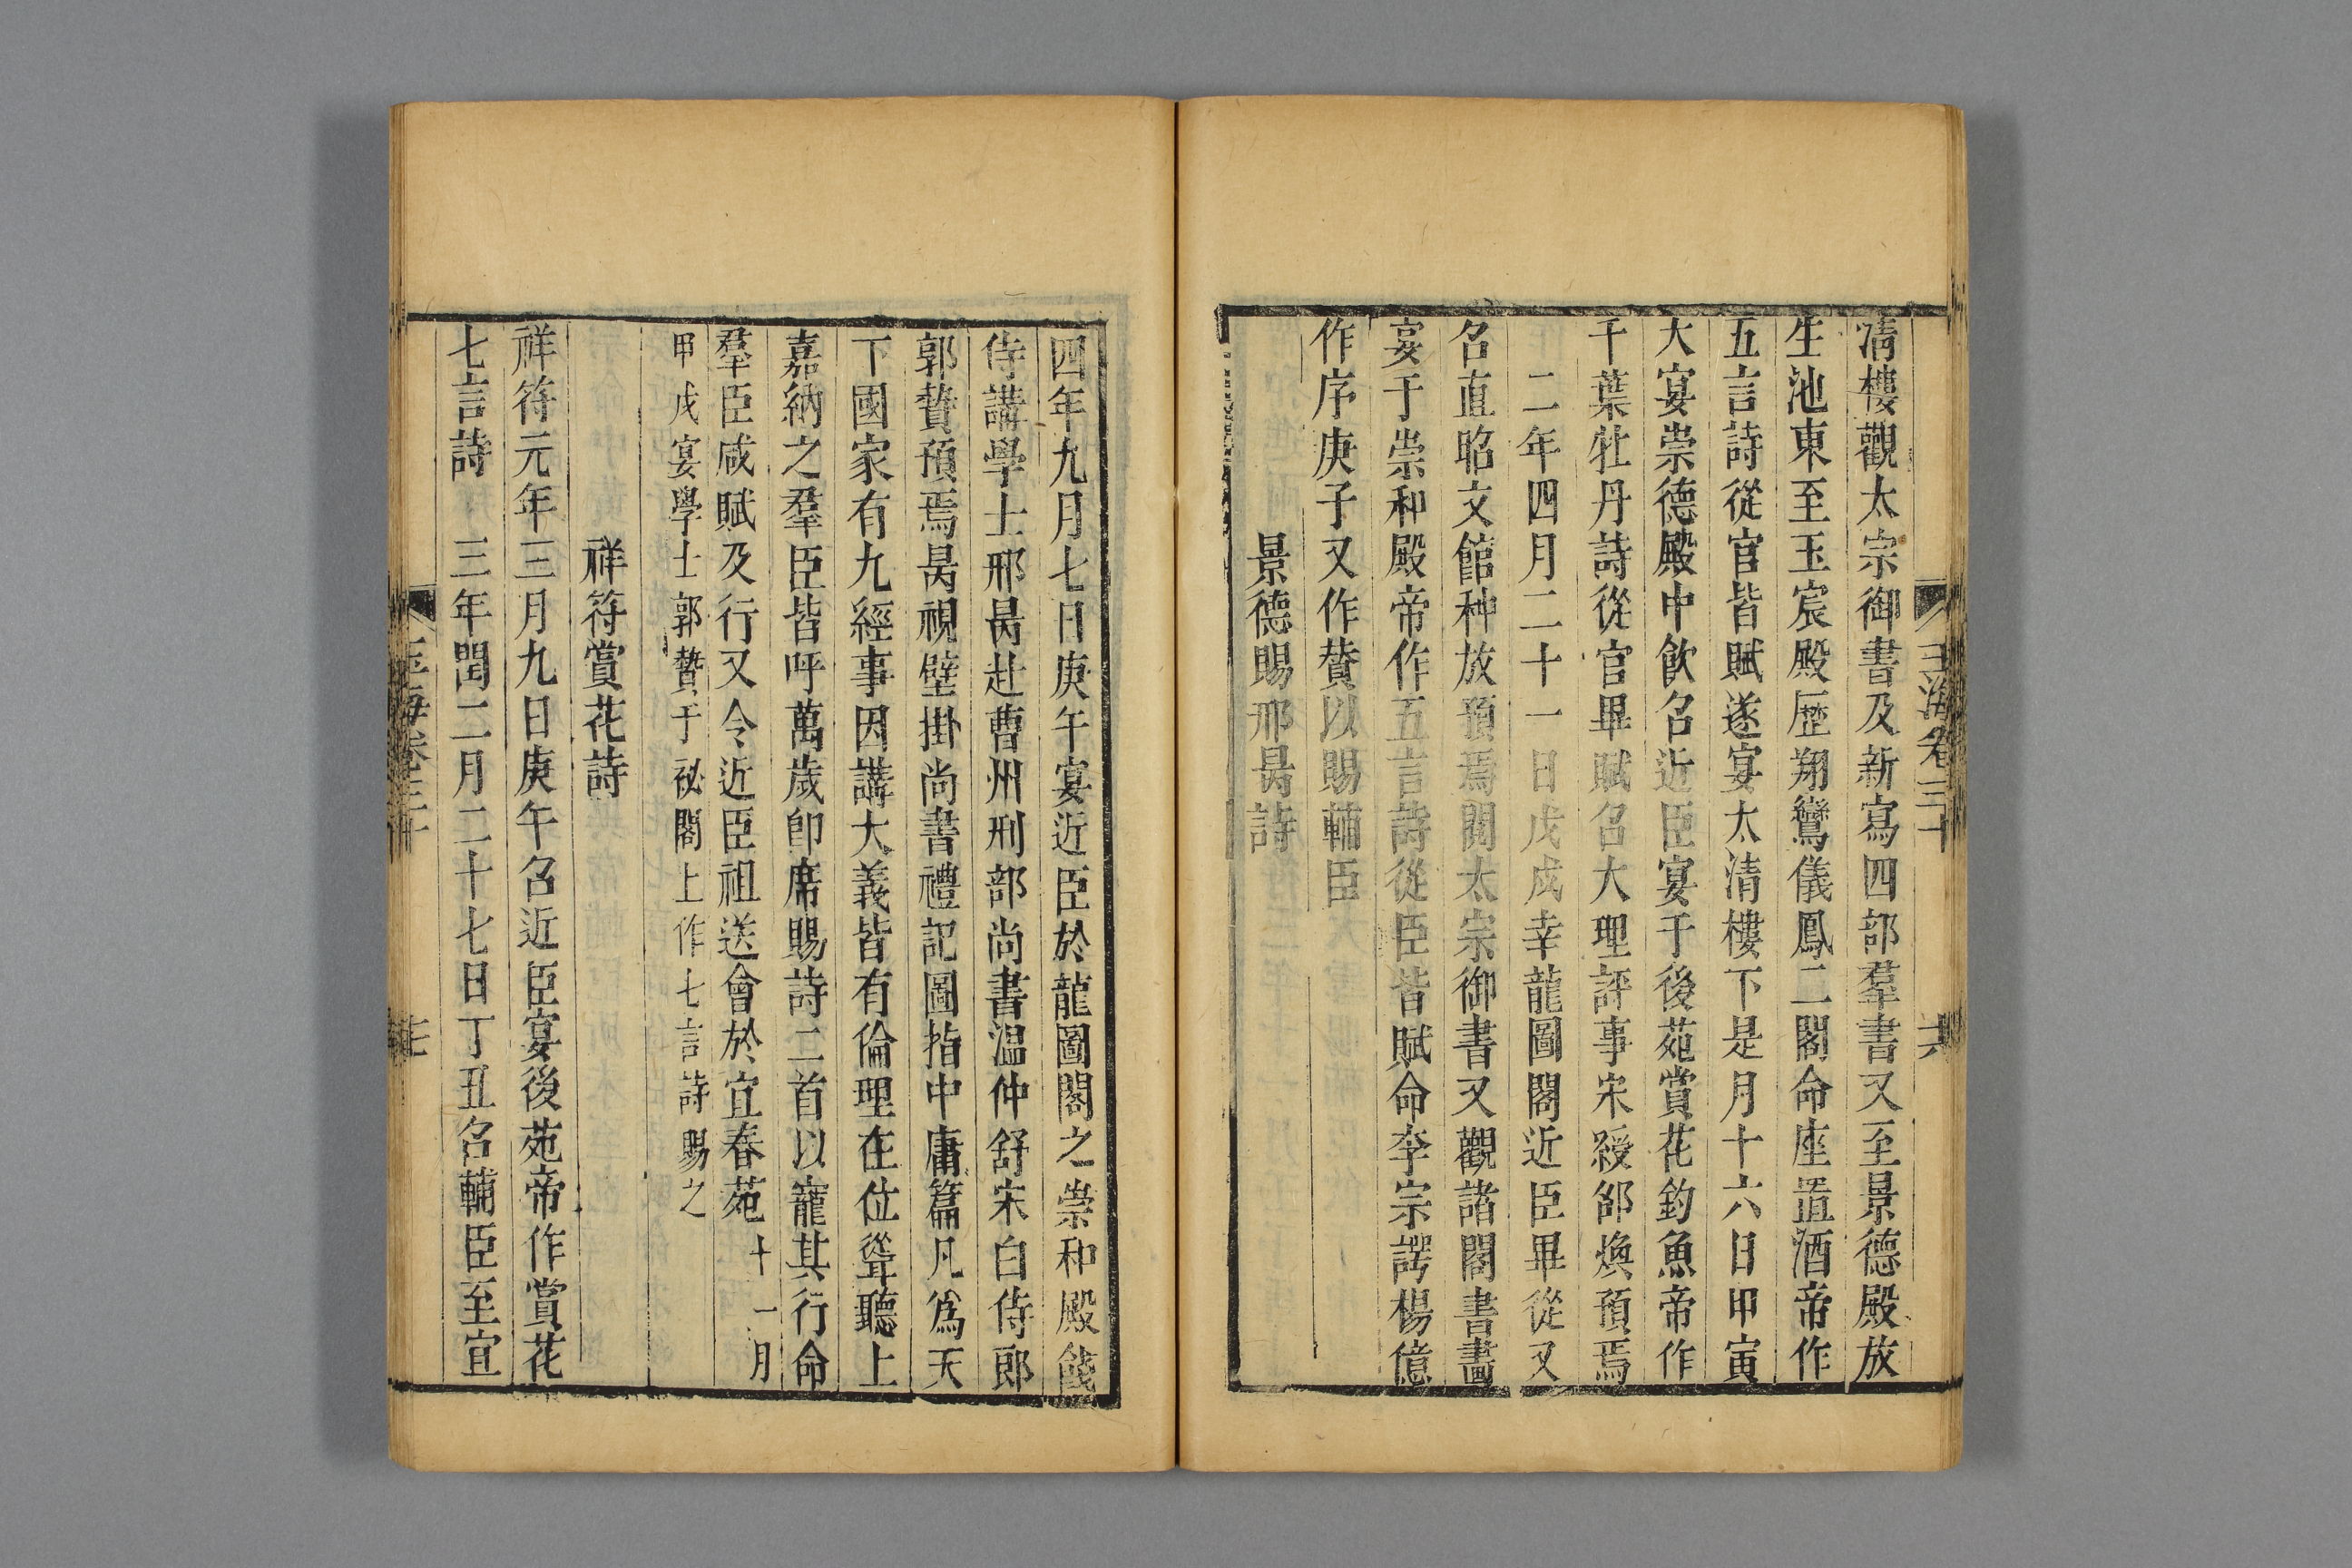 玉海卷三十
六
清樓觀太宗御書及新寫四部羣書又至景德殿放
生池東至玉宸殿歷翔鸞儀鳳二閣命座置酒帝作
五言詩從官皆賦遂宴太清樓下是月十六日甲寅
大宴崇德殿中飲召近臣宴于後苑賞花釣魚帝作
千葉牡丹詩從官畢賦召大理評事宋綬邵煥預焉
二年四月二十一日戊戌幸龍圖閣近臣畢從又
名直昭文館种放預焉閱太宗御書又觀諸閣書畫
宴于崇和殿帝作五言詩從臣皆賦命李宗諤楊億
作序庚子又作贊以賜輔臣
景德賜邢昺詩
四年九月七日庚午宴近臣於龍圖閣之崇和殿餞
侍講學士邢昺赴曹州刑部尚書温仲舒宋白侍郎
郭贄預焉昺視壁掛尚書禮記圖指中庸篇凡爲天
下國家有九經事因講大義皆有倫理在位聳聽上
嘉納之羣臣皆呼萬歲卽席賜詩二首以寵其行命
羣臣咸賦及行又令近臣祖送會於宜春苑十一月
甲戌宴學士郭贄于祕閣上作七言詩賜之
祥符賞花詩
祥符元年三月九日庚午召近臣宴後苑帝作賞花
七言詩 三年閏二月二十七日丁丑名輔臣至宜
玉海卷三十